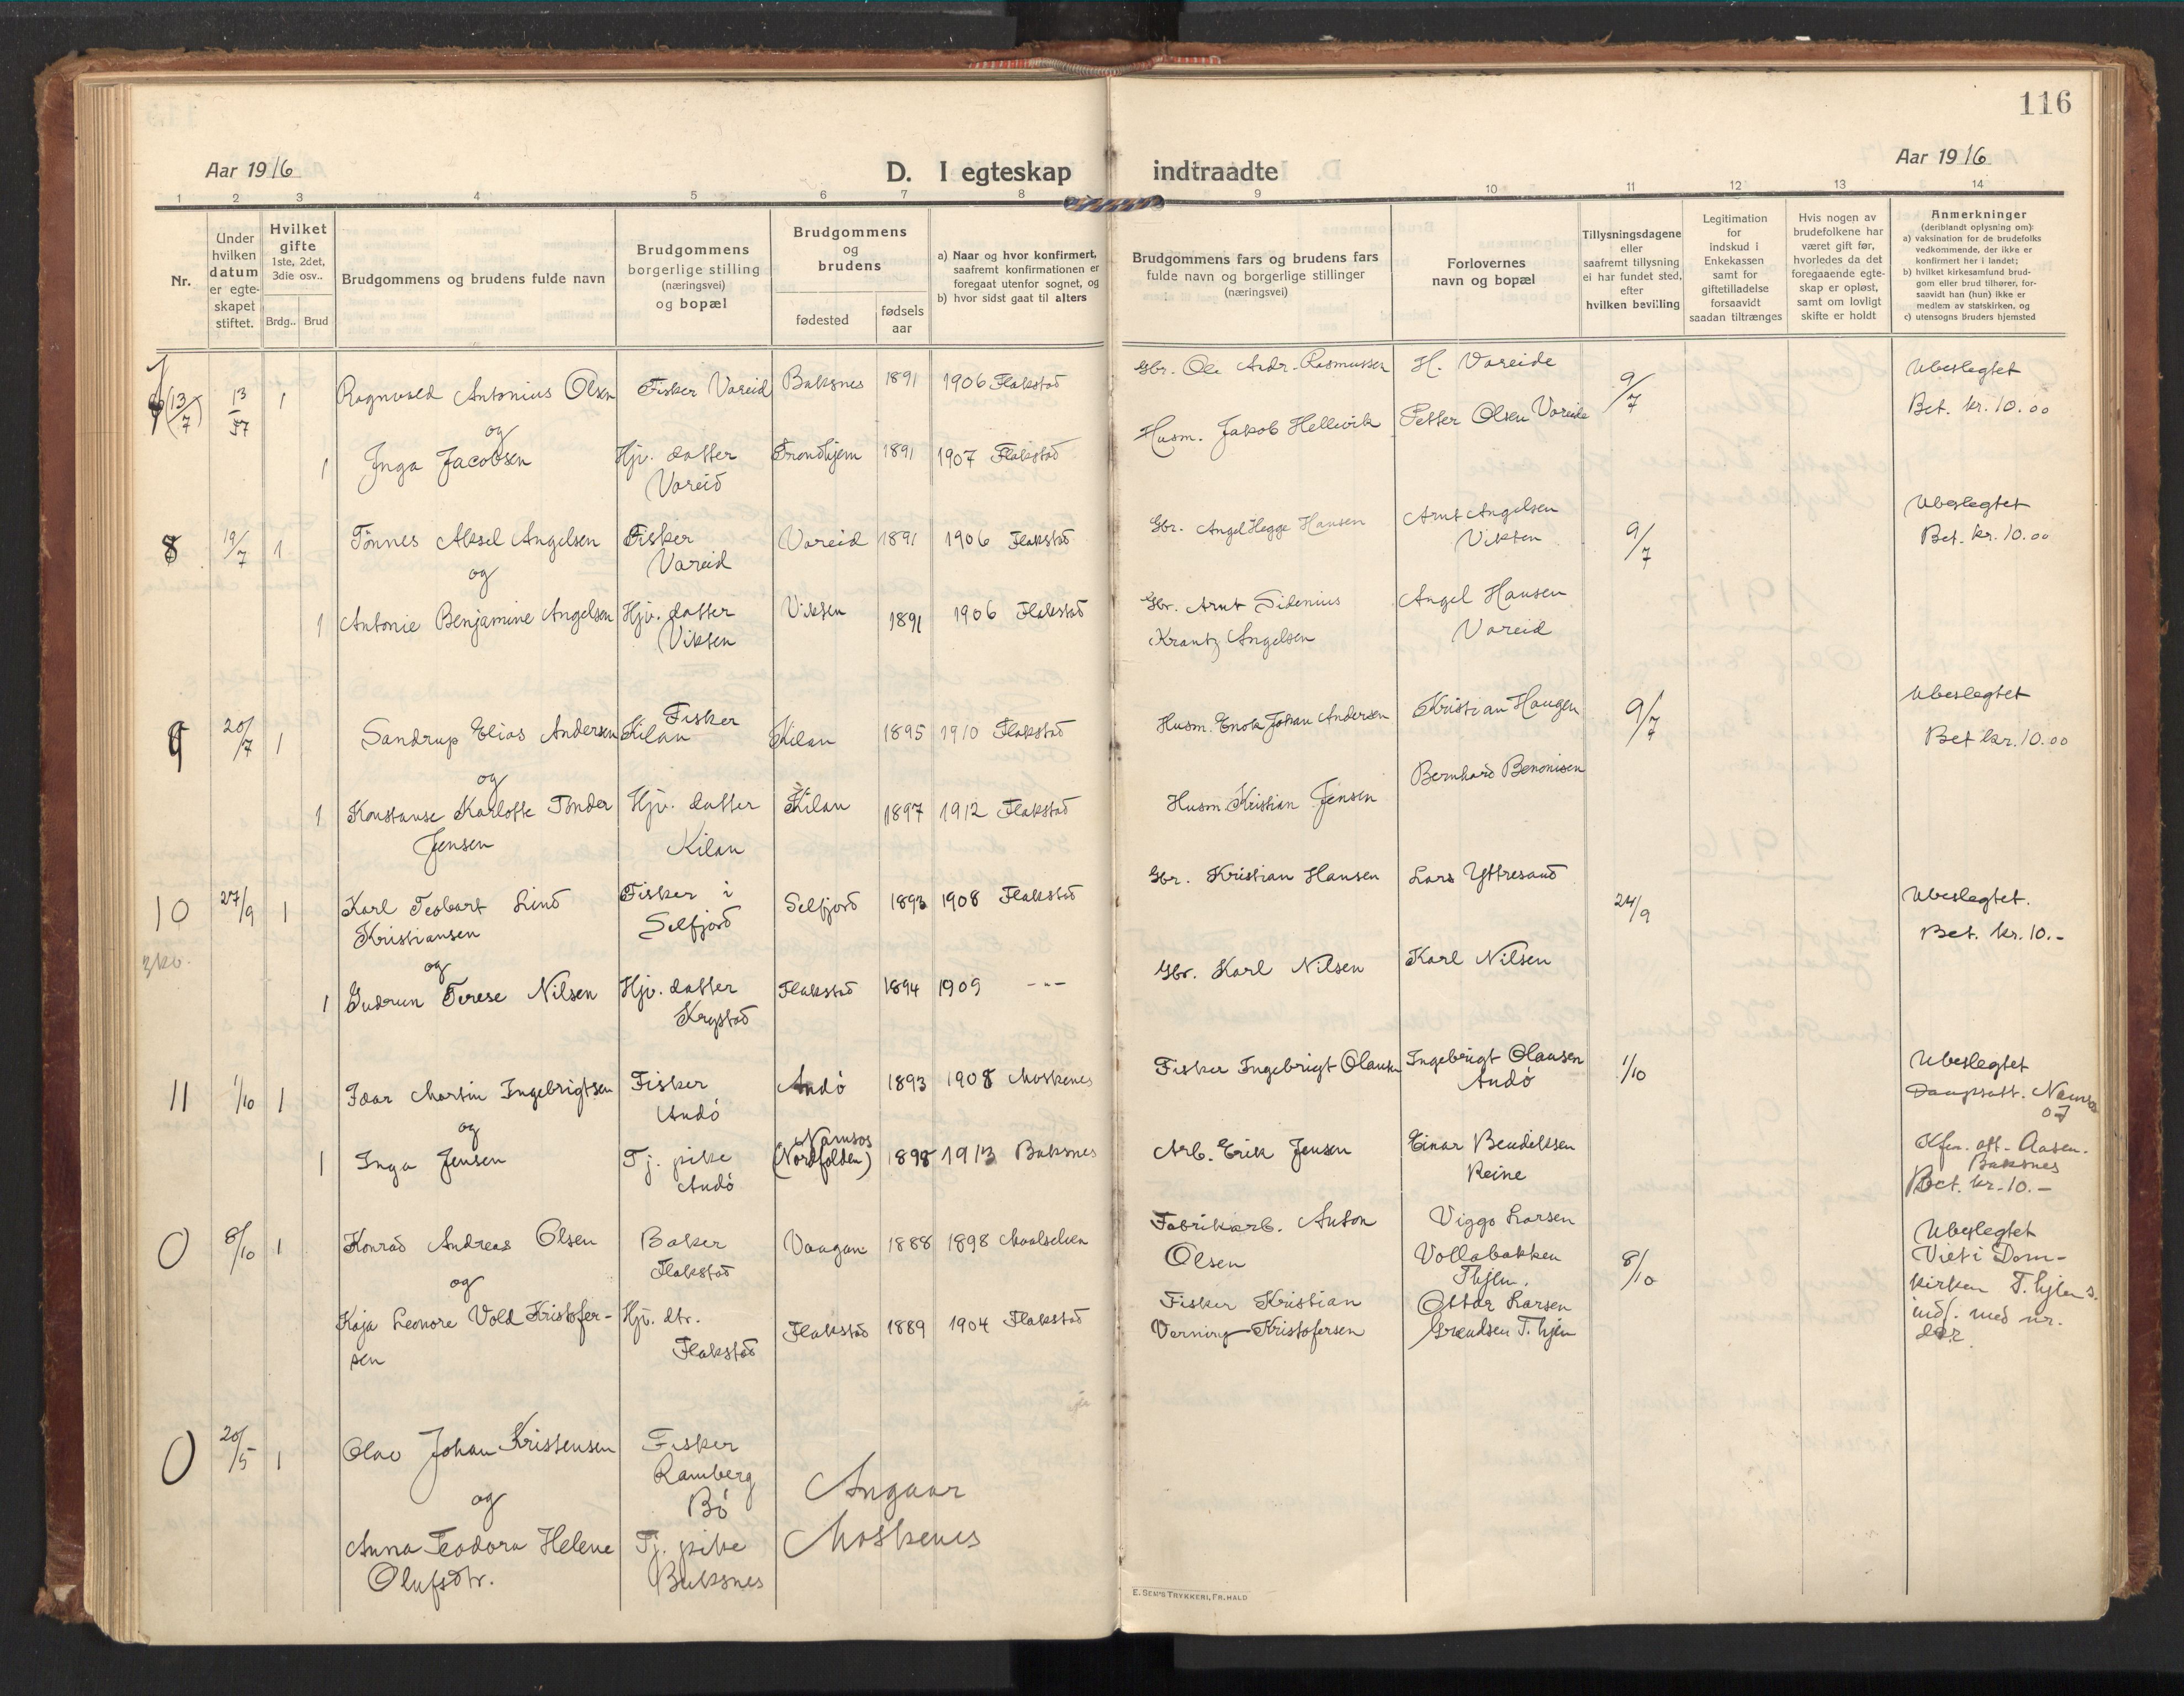 116
Aar 1916
D. I egteskap indtraadte
Aar 1916
1 2 3 4 5 6 7 8 9 10 11 12 13 14
Nr.
Under hvilken datum er egteskapet stiftet.
Hvilket gifte
1ste, 2det, 3die osv..
Brdg.. Brud
Brudgommens og brudens fulde navn
Brudgommens borgerlige stilling (næringsvei) og bopæl
Brudgommens og brudens
fødested
fødsels aar
a) Naar og hvor konfirmert, saafremt konfirmationen er foregaat utenfor sognet, og
b) hvor sidst gaat til alters
Brudgommens fars og brudens fars fulde navn og borgerlige stillinger (næringsvei)
Forlovernes navn og bopæl
Tillysningsdagene eller saafremt tillysning ei har fundet sted, efter hvilken bevilling
Legitimation for indskud i Enkekassen samt for giftetilladelse forsaavidt saadan tiltrænges
Hvis nogen av brudefolkene har været gift før, hvorledes da det foregaaende egteskap er opløst, samt om lovligt skifte er holdt
Anmerkninger
(deriblandt oplysning om):
a) vaksination for de brudefolks vedkommende, der ikke er konfirmert her i landet;
b) hvilket kirkesamfund brudgom eller brud tilhører, forsaavidt han (hun) ikke er medlem av statskirken, og
c) utensogns bruders hjemsted
7 (13/7) 13/7 1 Ragnvald Antonius Olsen Fisker Vareid Buksnes 1891 1906 Flakstad Gbr. Ole Andr. Rasmussen H. Vareide 9/7 Ubeslegtet
Bet. kr. 10.00
og
1 Inga Jacobsen Hjv. datter Vareid Trondhjem 1891 1907 Flakstad Husm. Jakob Hellevik Petter Olsen Vareide
8 19/7 1 Tönnes Aksel Angelsen Fisker Vareid Vareid 1891 1906 Flakstad Gbr. Angel Hegge Hansen Arnt Angelsen Vikten 9/7 Ubeslegtet
Bet. kr. 10.00
og
1 Antonie Benjamine Angelsen Hjv. datter Vikten Vikten 1891 1906 Flakstad Gbr. Arnt Sidenius Krantz Angelsen Angel Hansen Vareid
9 20/7 1 Sandrup Elias Andersen Fisker Kilan Kilan 1895 1910 Flakstad Husm. Enok Johan Andersen Kristian Haugen 9/7 Ubeslegtet
Bet kr. 10.00
og
1 Konstanse Karlotte Tönder Jensen Hjv. datter Kilan Kilan 1897 1912 Flakstad Husm. Kristian Jensen Bernhard Benonisen
10 27/9 1 Karl Teobart Lind Kristiansen Fisker i Selfjord Selfjord 1893 1908 Flakstad Gbr. Kristian Hansen Lars Yttresand 24/9 Ubeslegtet.
Bet. kr. 10.-
og
1 Gudrun Terese Nilsen Hjv. datter Krystad Flakstad 1894 1909 -"- Gbr. Karl Nilsen Karl Nilsen
11 1/10 1 Idar Martin Ingebrigtsen Fisker Andö Andö 1893 1908 Moskenes Fisker Ingebrigt Olausen Ingebrigt Olausen Andö 1/10 Ubeslegtet
Daapsatt. Namsos
og
1 Inga Jensen Tj. pike Andö Namsos (Nordfolden) 1898 1913 Buksnes Arb. Erik Jensen Einar Bendiksen Reine
Kfm. att. Aasen.
Buksnes
Bet. kr. 10.-
0 8/10 1 Konrad Andreas Olsen Baker Flakstad Vaagan 1888 1898 Maalselven Fabrikarb. Anton Olsen Viggo Larsen Vollabakken Thjlm. 8/10 Ubeslegtet
Viet i Domkirken T.hjlem s.
indf. med nr.
der
og
Kaja Leonore Vold Kristofersen Hjv. dtr. Flakstad Flakstad 1889 1904 Flakstad Fisker Kristian Verning Kristofersen Ottar Larsen Grendsen T.hjem
0 20/5 1 Olav Johan Kristensen Fisker Ramberg Bö Angaar
og
Anna Teodora Helene Olufsdtr. Tj. pike Buksnes Moskenes
E. SEM'S TRYKKERI, FR.HALD